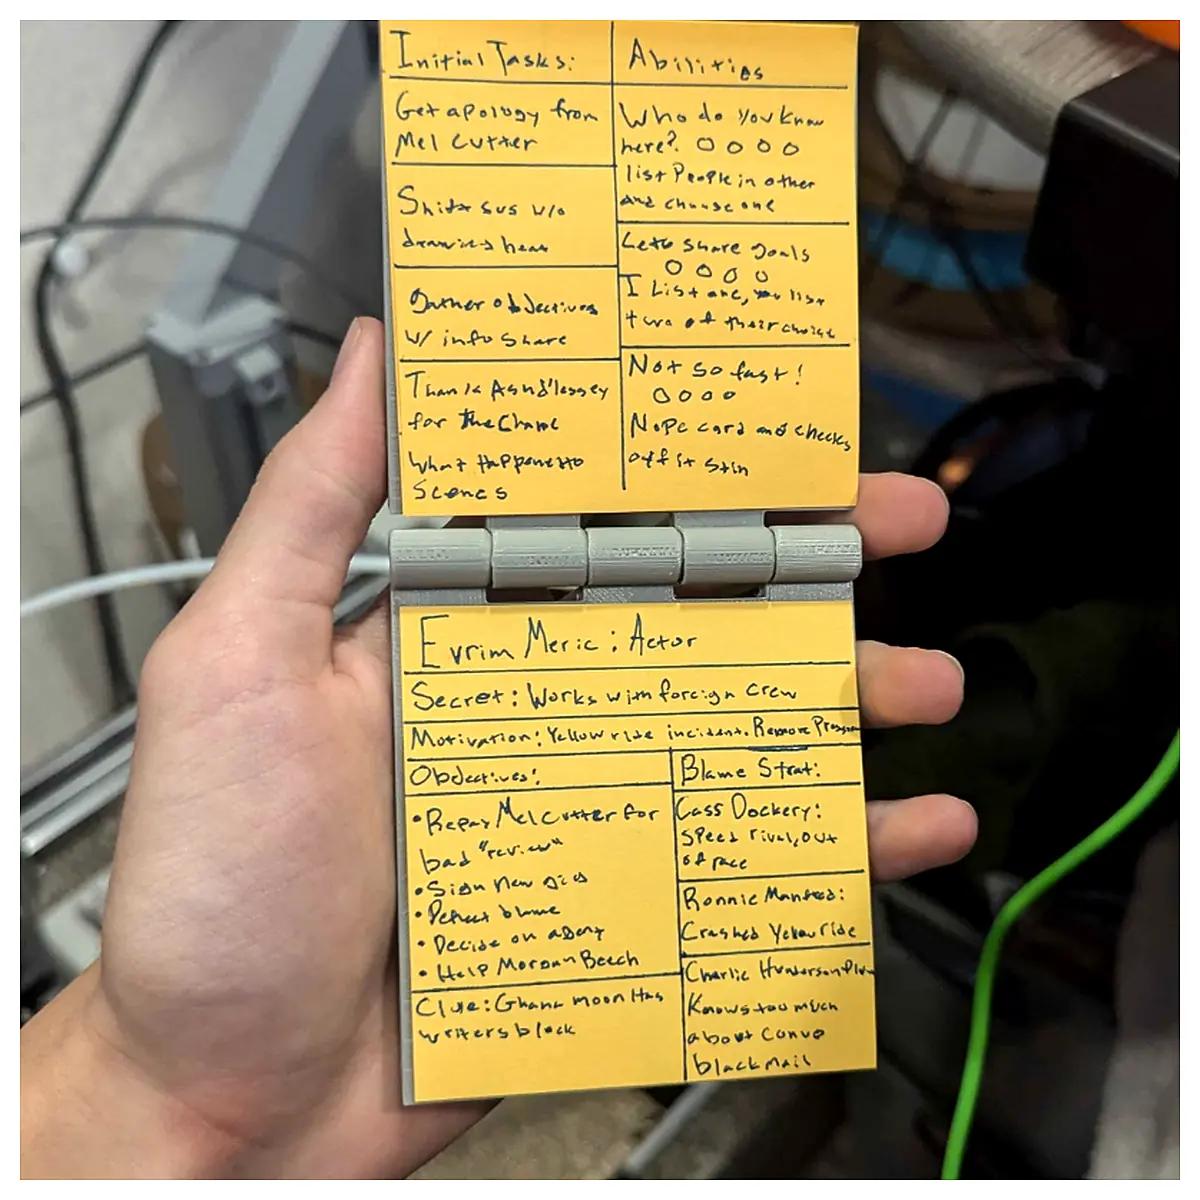 Initial Tasks:
Get apology from
Mel Cutter
Shift sus w/o
drawing heat
Gather objectives
w/ info share
Thank
for the Chance
What Happens to
Scenes
Abilities
Who do you know
here? O O O O
list People in other
and choose one
Lets share goals
O O O O
I List one, you list
two of their choice
Not so fast!
O O O O
Nope card and checks
off if
Evrim Meric: Actor
Secret: Works with foreign crew
Motivation: Yellow ride incident. Remove
Objectives:
• Repay Mel Cutter for
bad "review"
• Sign New gigs
• Deflect blame
• Decide on agent
• Help Morgan Beech
Clue: Ghana moon Has
writers block
Blame Strat:
Cass Dockery:
Speed rival, out
of race
Ronnie
Crashed Yellow ride
Charlie
Knows too much
about Convo
blackmail